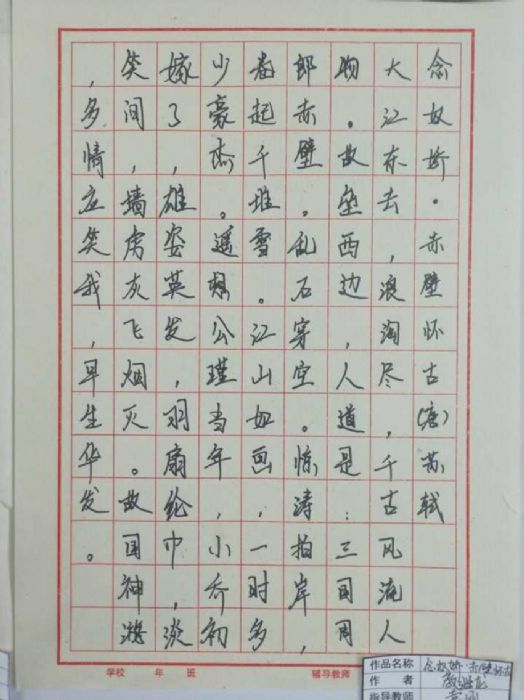 念奴娇·赤壁怀古(唐)苏轼
大江东去,浪淘尽,千古风流人
物。故垒西边,人道是:三国周
郎赤壁。乱石穿空。惊涛拍岸,
卷起千堆雪。江山如画,一时多
少豪杰。遥想公瑾当年,小乔初
嫁了,雄姿英发,羽扇纶巾,淡
笑间,墙虏灰飞烟灭。故国神游
,多情应笑我,早生华发。
学校 年 班 辅导教师
作品名称 念奴娇·赤壁怀古
作者
指导教师